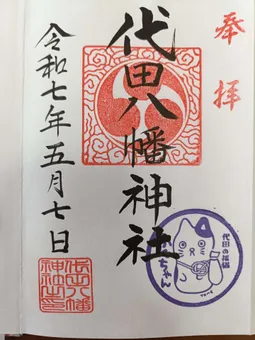 奉拝
代田八幡神社
令和七年五月七日
代田八幡
神社之印
代田の招福
ちゃん